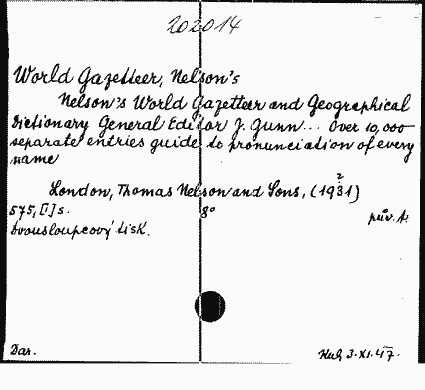 202014
World Gazetteer, Nelson's
Nelson's World Gazetteer and Geographical
Dictionary General Editor J. Gunn... Over 10,000
separate entries guide to pronunciation of every
name
London, Thomas Nelson and Sons, (1931)
2
575, [1] s. 8° pův. v.
dvousloupcový tisk.
Dar. 3.XI.47.